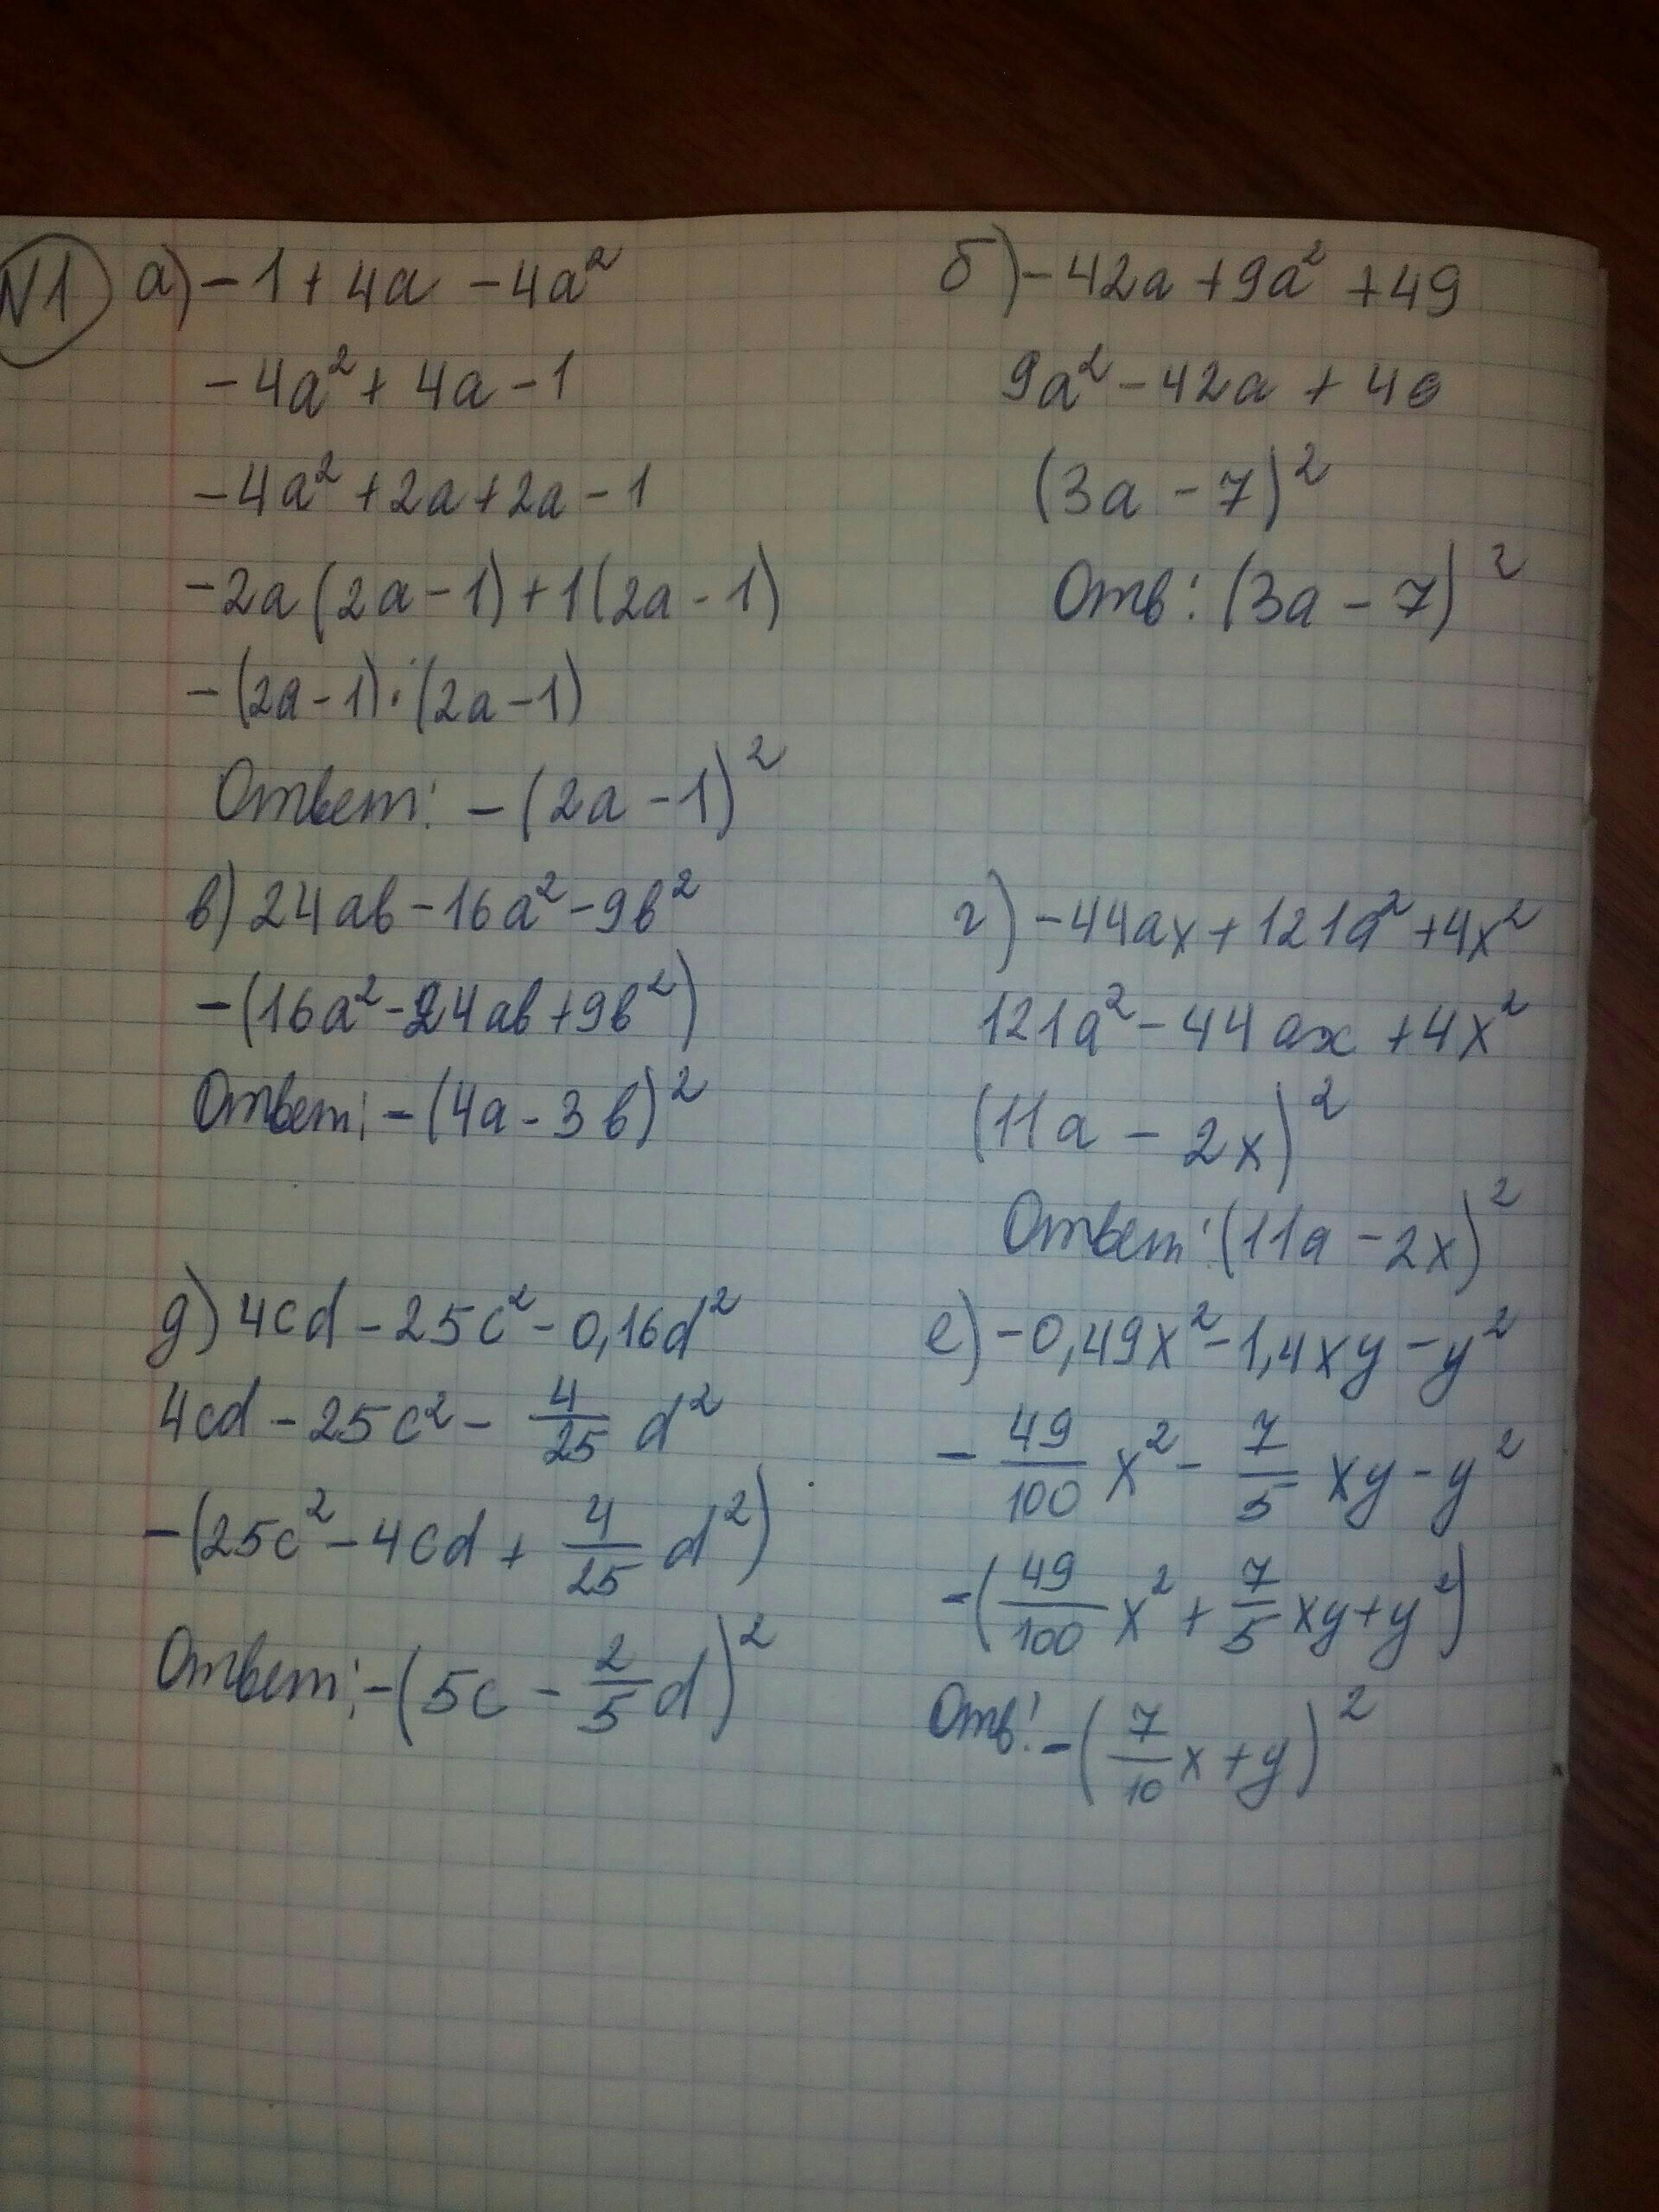 N1
а) -1 + 4a - 4a²
-4a² + 4a - 1
-4a² + 2a + 2a - 1
-2a (2a - 1) + 1(2a - 1)
-(2a - 1)·(2a - 1)
Ответ: -(2a - 1)²
б) -42a + 9a² + 49
9a² - 42a + 49
(3a - 7)²
Отв: (3a - 7)²
в) 24ab - 16a² - 9b²
-(16a² - 24ab + 9b²)
Ответ: -(4a - 3b)²
г) -44ax + 121a² + 4x²
121a² - 44ax + 4x²
(11a - 2x)²
Ответ: (11a - 2x)²
д) 4cd - 25c² - 0,16d²
4cd - 25c² - 4/25 d²
-(25c² - 4cd + 4/25 d²)
Ответ: -(5c - 2/5 d)²
е) -0,49x² - 1,4xy - y²
-49/100 x² - 7/5 xy - y²
-(49/100 x² + 7/5 xy + y²)
Отв: -(7/10 x + y)²